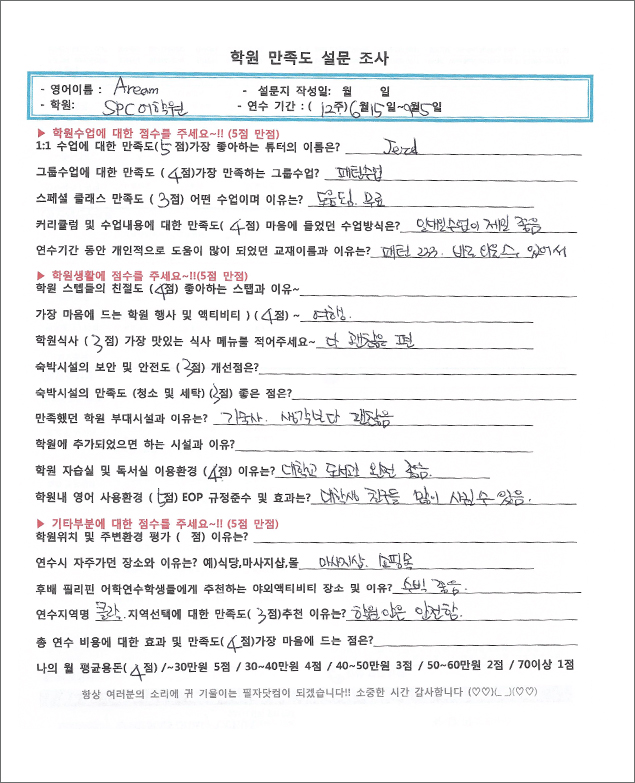 학원 만족도 설문 조사
- 영어이름 : Aream - 설문지 작성일: 월 일
- 학원: SPC어학원 - 연수 기간 : ( 12주) 6월 15일~9월5일
▶ 학원수업에 대한 점수를 주세요~!! (5점 만점)
1:1 수업에 대한 만족도(5 점)가장 좋아하는 튜터의 이름은?
그룹수업에 대한 만족도 ( 4점)가장 만족하는 그룹수업? 패턴수업
스페셜 클래스 만족도 ( 3점) 어떤 수업이며 이유는? 도움됨. 무료
커리큘럼 및 수업내용에 대한 만족도( 4점) 마음에 들었던 수업방식은? 일대일수업이 제일 좋음
연수기간 동안 개인적으로 도움이 많이 되었던 교재이름과 이유는? 패턴 233. 있어서
▶ 학원생활에 점수를 주세요~!!(5점 만점)
학원 스텝들의 친절도 (4점) 좋아하는 스탭과 이유~
가장 마음에 드는 학원 행사 및 액티비티 ) (4점) ~ 여행.
학원식사 ( 3점) 가장 맛있는 식사 메뉴를 적어주세요~ 다 괜찮은 편
숙박시설의 보안 및 안전도 ( 3점) 개선점은?
숙박시설의 만족도 (청소 및 세탁) (3점) 좋은 점은?
만족했던 학원 부대시설과 이유는? 기숙사. 생각보다 괜찮음
학원에 추가되었으면 하는 시설과 이유?
학원 자습실 및 독서실 이용환경 ( 4점) 이유는? 대학교 도서관 완전 좋음.
학원내 영어 사용환경 ( 5점) EOP 규정준수 및 효과는? 대학생 친구들 많이 사귈 수 있음.
▶ 기타부분에 대한 점수를 주세요~!! (5점 만점)
학원위치 및 주변환경 평가 ( 점) 이유는?
연수시 자주가던 장소와 이유는? 예)식당,마사지샵,몰 마사지샵. 쇼핑몰
후배 필리핀 어학연수학생들에게 추천하는 야외액티비티 장소 및 이유? 수빅 좋음.
연수지역명 클락.지역선택에 대한 만족도( 3점)추천 이유는? 학원 안은 안전함.
총 연수 비용에 대한 효과 및 만족도( 4점)가장 마음에 드는 점은?
나의 월 평균용돈(4점) /~30만원 5점 / 30~40만원 4점 / 40~50만원 3점 / 50~60만원 2점 / 70이상 1점
항상 여러분의 소리에 귀 기울이는 필자닷컴이 되겠습니다!! 소중한 시간 감사합니다 (♡♡)(_ _)(♡♡)